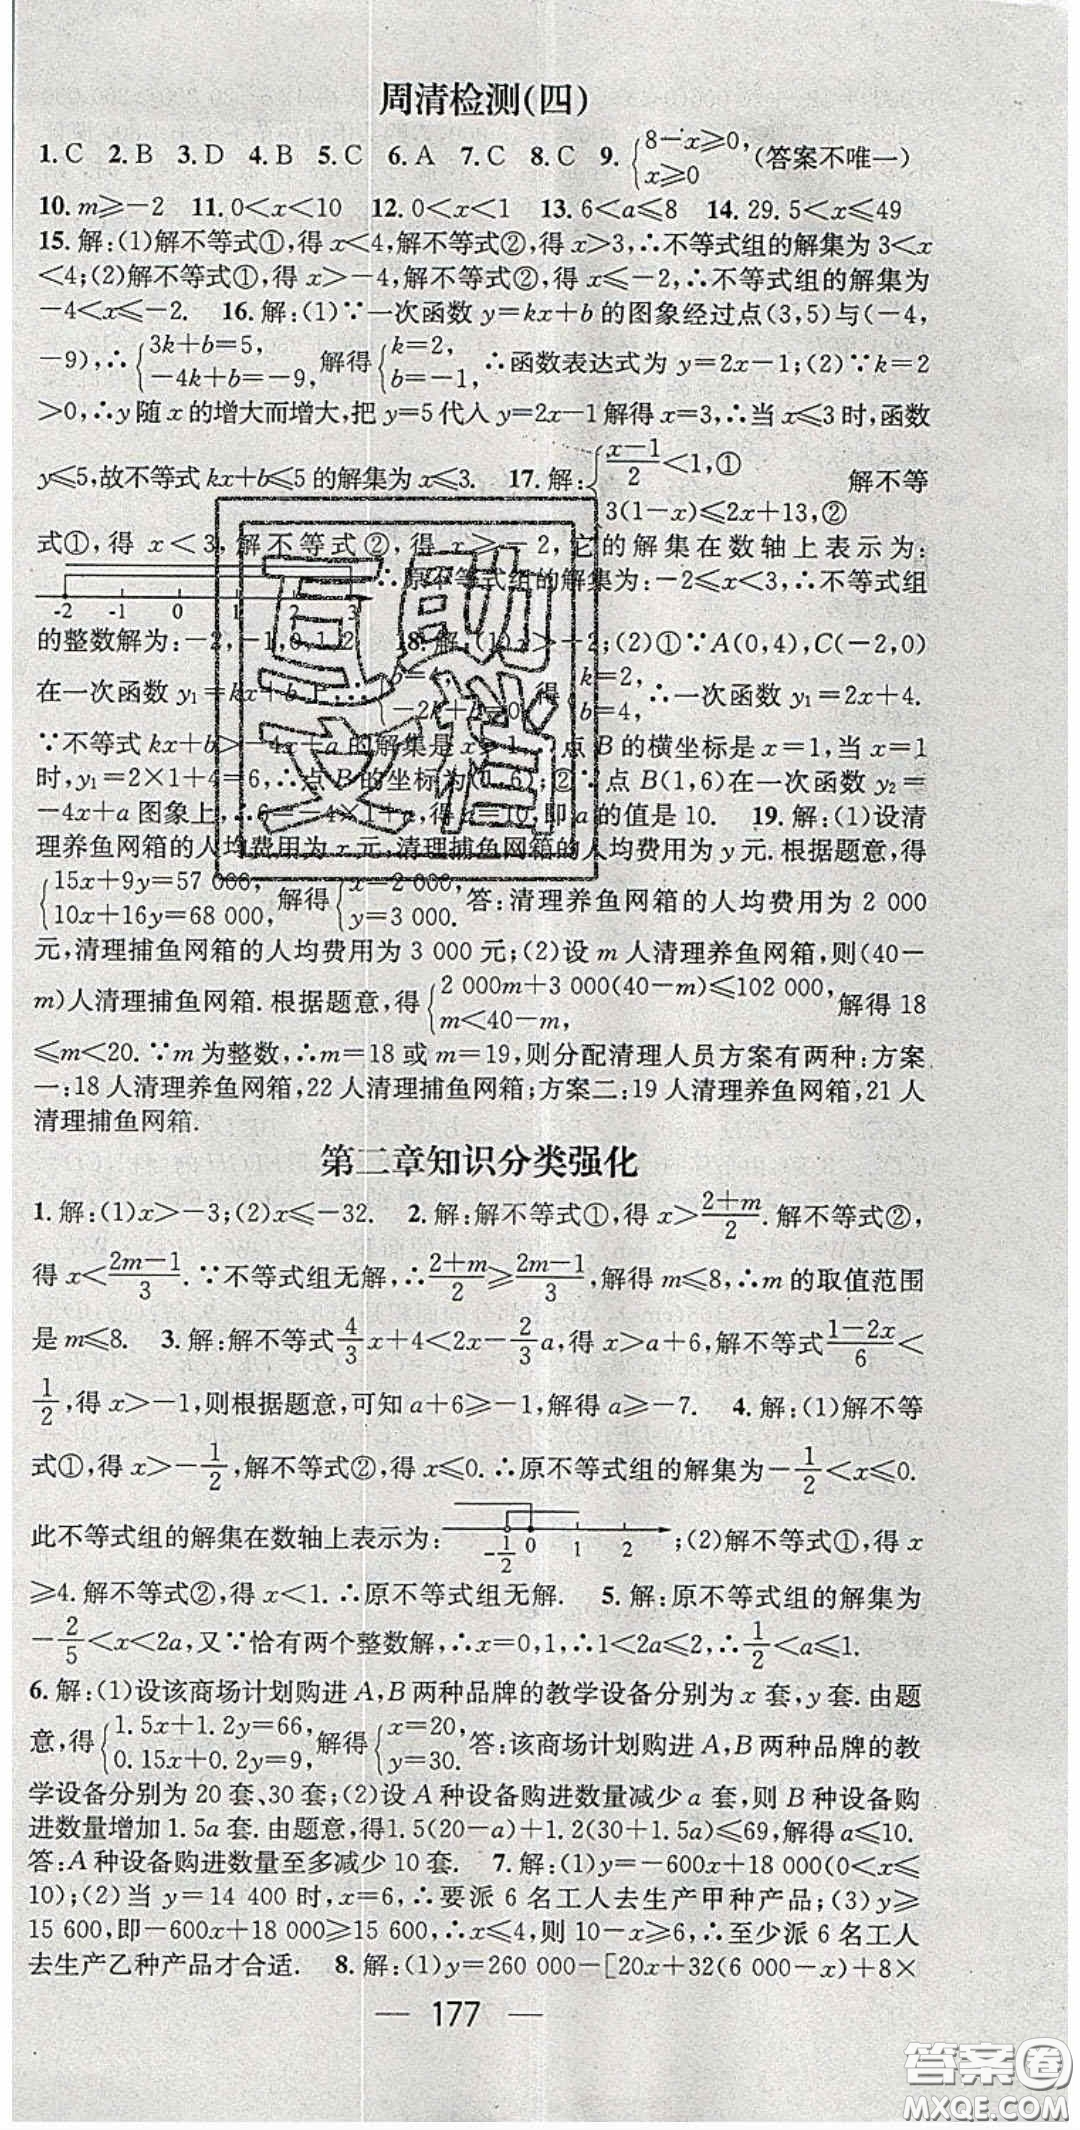 周清检测(四)
1. C 2. B 3. D 4. B 5. C 6. A 7. C 8. C 9. {8-x⩾0, x⩾0 (答案不唯一)
10. m⩾-2 11. 0<x<10 12. 0<x<1 13. 6<a⩽8 14. 29.5<x⩽49
15. 解:(1)解不等式①,得 x<4,解不等式②,得 x>3,∴不等式组的解集为 3<x
<4;(2)解不等式①,得 x>-4,解不等式②,得 x⩽-2,∴不等式组的解集为
-4<x⩽-2. 16. 解:(1)∵一次函数 y=kx+b 的图象经过点(3,5)与(-4,
-9),∴{3k+b=5, -4k+b=-9, 解得{k=2, b=-1, ∴函数表达式为 y=2x-1;(2)∵k=2
>0,∴y 随 x 的增大而增大,把 y=5代人 y=2x-1解得 x=3,∴当 x⩽3时,函数
y⩽5,故不等式 kx+b⩽5的解集为 x⩽3. 17. 解:{(x-1)/2<1,① 3(1-x)⩽2x+13,② 解不等
式①,得 x<3,解不等式②,得 x⩾-2,它的解集在数轴上表示为:
-2 -1 0 1 2 3 ∴原不等式组的解集为:-2⩽x<3,∴不等式组
的整数解为:-2,-1,0,1,2. 18. 解:(1)x>-2;(2)①∵A(0,4),C(-2,0)
在一次函数 y₁=kx+b上,∴{b=4, -2k+b=0, 得{k=2, b=4, ∴一次函数 y₁=2x+4.
∵不等式 kx+b>-4x+a的解集是 x>1,∴点 B 的横坐标是 x=1,当 x=1
时,y₁=2×1+4=6,∴点 B 的坐标为(1,6);②∵点 B(1,6)在一次函数 y₂=
-4x+a图象上,∴6=-4×1+a,得 a=10,即 a 的值是 10. 19. 解:(1)设清
理养鱼网箱的人均费用为 x 元,清理捕鱼网箱的人均费用为 y 元. 根据题意,得
{15x+9y=57 000, 10x+16y=68 000, 解得{x=2 000, y=3 000. 答:清理养鱼网箱的人均费用为 2 000
元,清理捕鱼网箱的人均费用为 3 000 元;(2)设 m 人清理养鱼网箱,则(40-
m)人清理捕鱼网箱. 根据题意,得{2 000m+3 000(40-m)⩽102 000, m<40-m, 解得 18
⩽m<20. ∵m 为整数,∴m=18 或 m=19,则分配清理人员方案有两种:方案
一:18 人清理养鱼网箱,22 人清理捕鱼网箱;方案二:19 人清理养鱼网箱,21 人
清理捕鱼网箱.
第二章知识分类强化
1. 解:(1)x>-3;(2)x⩽-32. 2. 解:解不等式①,得 x>(2+m)/2. 解不等式②,
得 x<(2m-1)/3. ∵不等式组无解,∴(2+m)/2⩾(2m-1)/3,解得 m⩽8,∴m 的取值范围
是 m⩽8. 3. 解:解不等式4/3x+4<2x-2/3a,得 x>a+6,解不等式(1-2x)/6<
1/2,得 x>-1,则根据题意,可知 a+6⩾-1,解得a⩾-7. 4. 解:(1)解不等
式①,得 x>-1/2,解不等式②,得 x⩽0. ∴原不等式组的解集为-1/2<x⩽0.
此不等式组的解集在数轴上表示为: -1/2 0 1 2 ;(2)解不等式①,得 x
⩾4. 解不等式②,得 x<1. ∴原不等式组无解. 5. 解:原不等式组的解集为
-2/5<x<2a,又∵恰有两个整数解,∴x=0,1,∴1<2a⩽2,∴1/2<a⩽1.
6. 解:(1)设该商场计划购进 A,B 两种品牌的教学设备分别为 x 套,y 套. 由题
意,得{1.5x+1.2y=66, 0.15x+0.2y=9, 解得{x=20, y=30. 答:该商场计划购进 A,B 两种品牌的教
学设备分别为 20 套、30 套;(2)设 A 种设备购进数量减少 a 套,则 B 种设备购
进数量增加 1.5a 套. 由题意,得1.5(20-a)+1.2(30+1.5a)⩽69,解得a⩽10.
答:A 种设备购进数量至多减少 10 套. 7. 解:(1)y=-600x+18 000(0<x⩽
10);(2)当 y=14 400 时,x=6,∴要派 6 名工人去生产甲种产品;(3)y⩾
15 600,即-600x+18 000⩾15 600,∴x⩽4,则 10-x⩾6,∴至少派 6 名工人
去生产乙种产品才合适. 8. 解:(1)y=260 000-[20x+32(6 000-x)+8×
— 177 —
答案圈
MXQE.COM